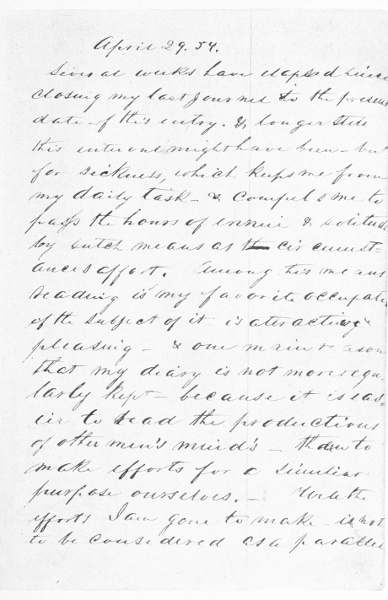 April 29. 54.
Several weeks have elapsed since
closing my last Journal to the present
date of this entry. & longer still
this interval might have been - but
for sickness, which keeps me from
my daily task - & compels me to
pass the hours of ennui & solitude
by such means as circumst-
ances afford. Among this means
reading is my favorite occupation
if the subject of it is attractive &
pleasing - & one main reason
that my diary is not more regu-
larly kept - because it is eas-
ier to read the productions
of other men's minds - than to
make efforts for a similar
purpose ourselves. -
efforts I am gone to make - is not
to be considered as a parallel